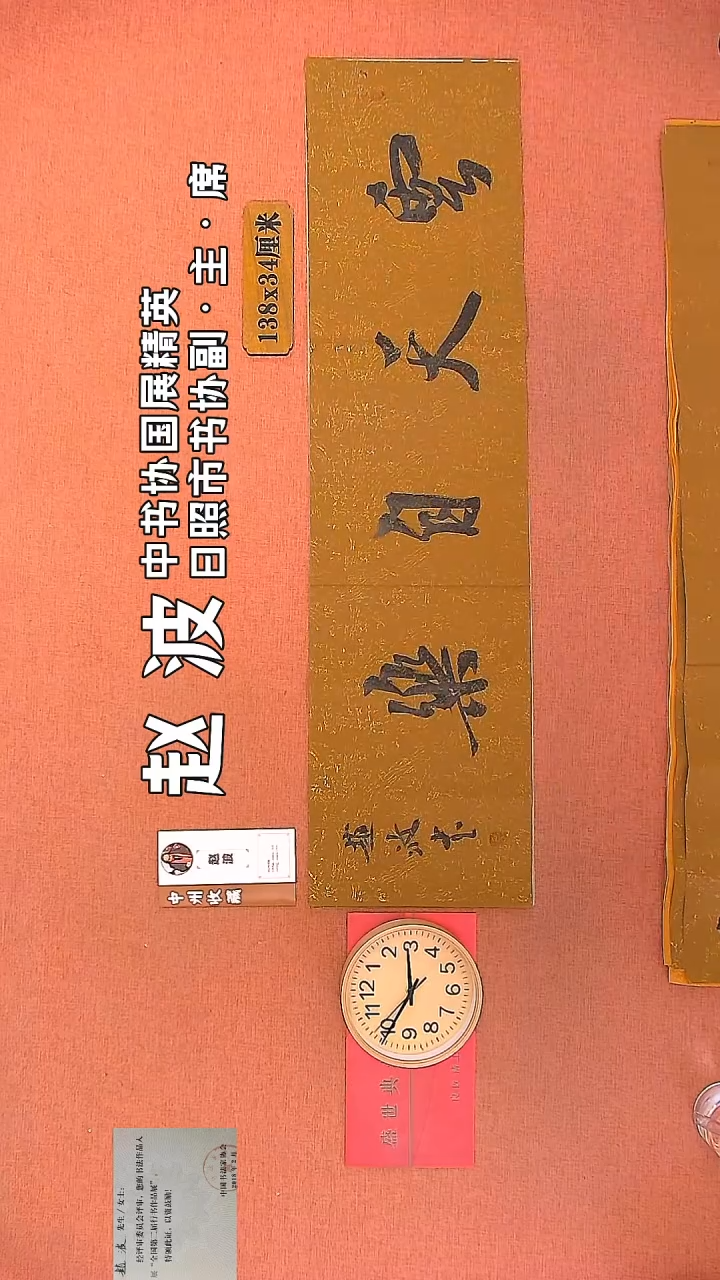 赵 波
中书协国展精英
日照市书协副·主·席
138x34厘米
天自樂
赵波书
赵波
中州收藏
12
1
2
3
4
5
6
7
8
9
10
11
盛世典
赵 波 先生/女士:
经评审委员会评审，您的书法作品入
展“全国第二届行书作品展”，
特颁此证，以资鼓励!
中国书法家协会